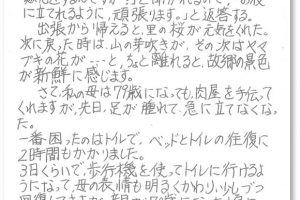 に立てれるように、頑張ります。」と返答する。
出張から帰えると、里の桜が元気をくれた。
次に戻った時は、山の芽吹きが、その次はヤマ
ブキの花が…と、ちょと離れると、故郷の景色
が新鮮に感じます。
さて、私の母は79歳になっても、肉屋を手伝って
くれますが、先日、足が腫れて、急に立てなくなっ
た。
一番困ったのはトイレで、ベッドとトイレの往復に
2時間もかかりました。
3日くらいで、歩行機を使ってトイレに行けるよ
うになって、母の表情も明るくかわり、少しづつ